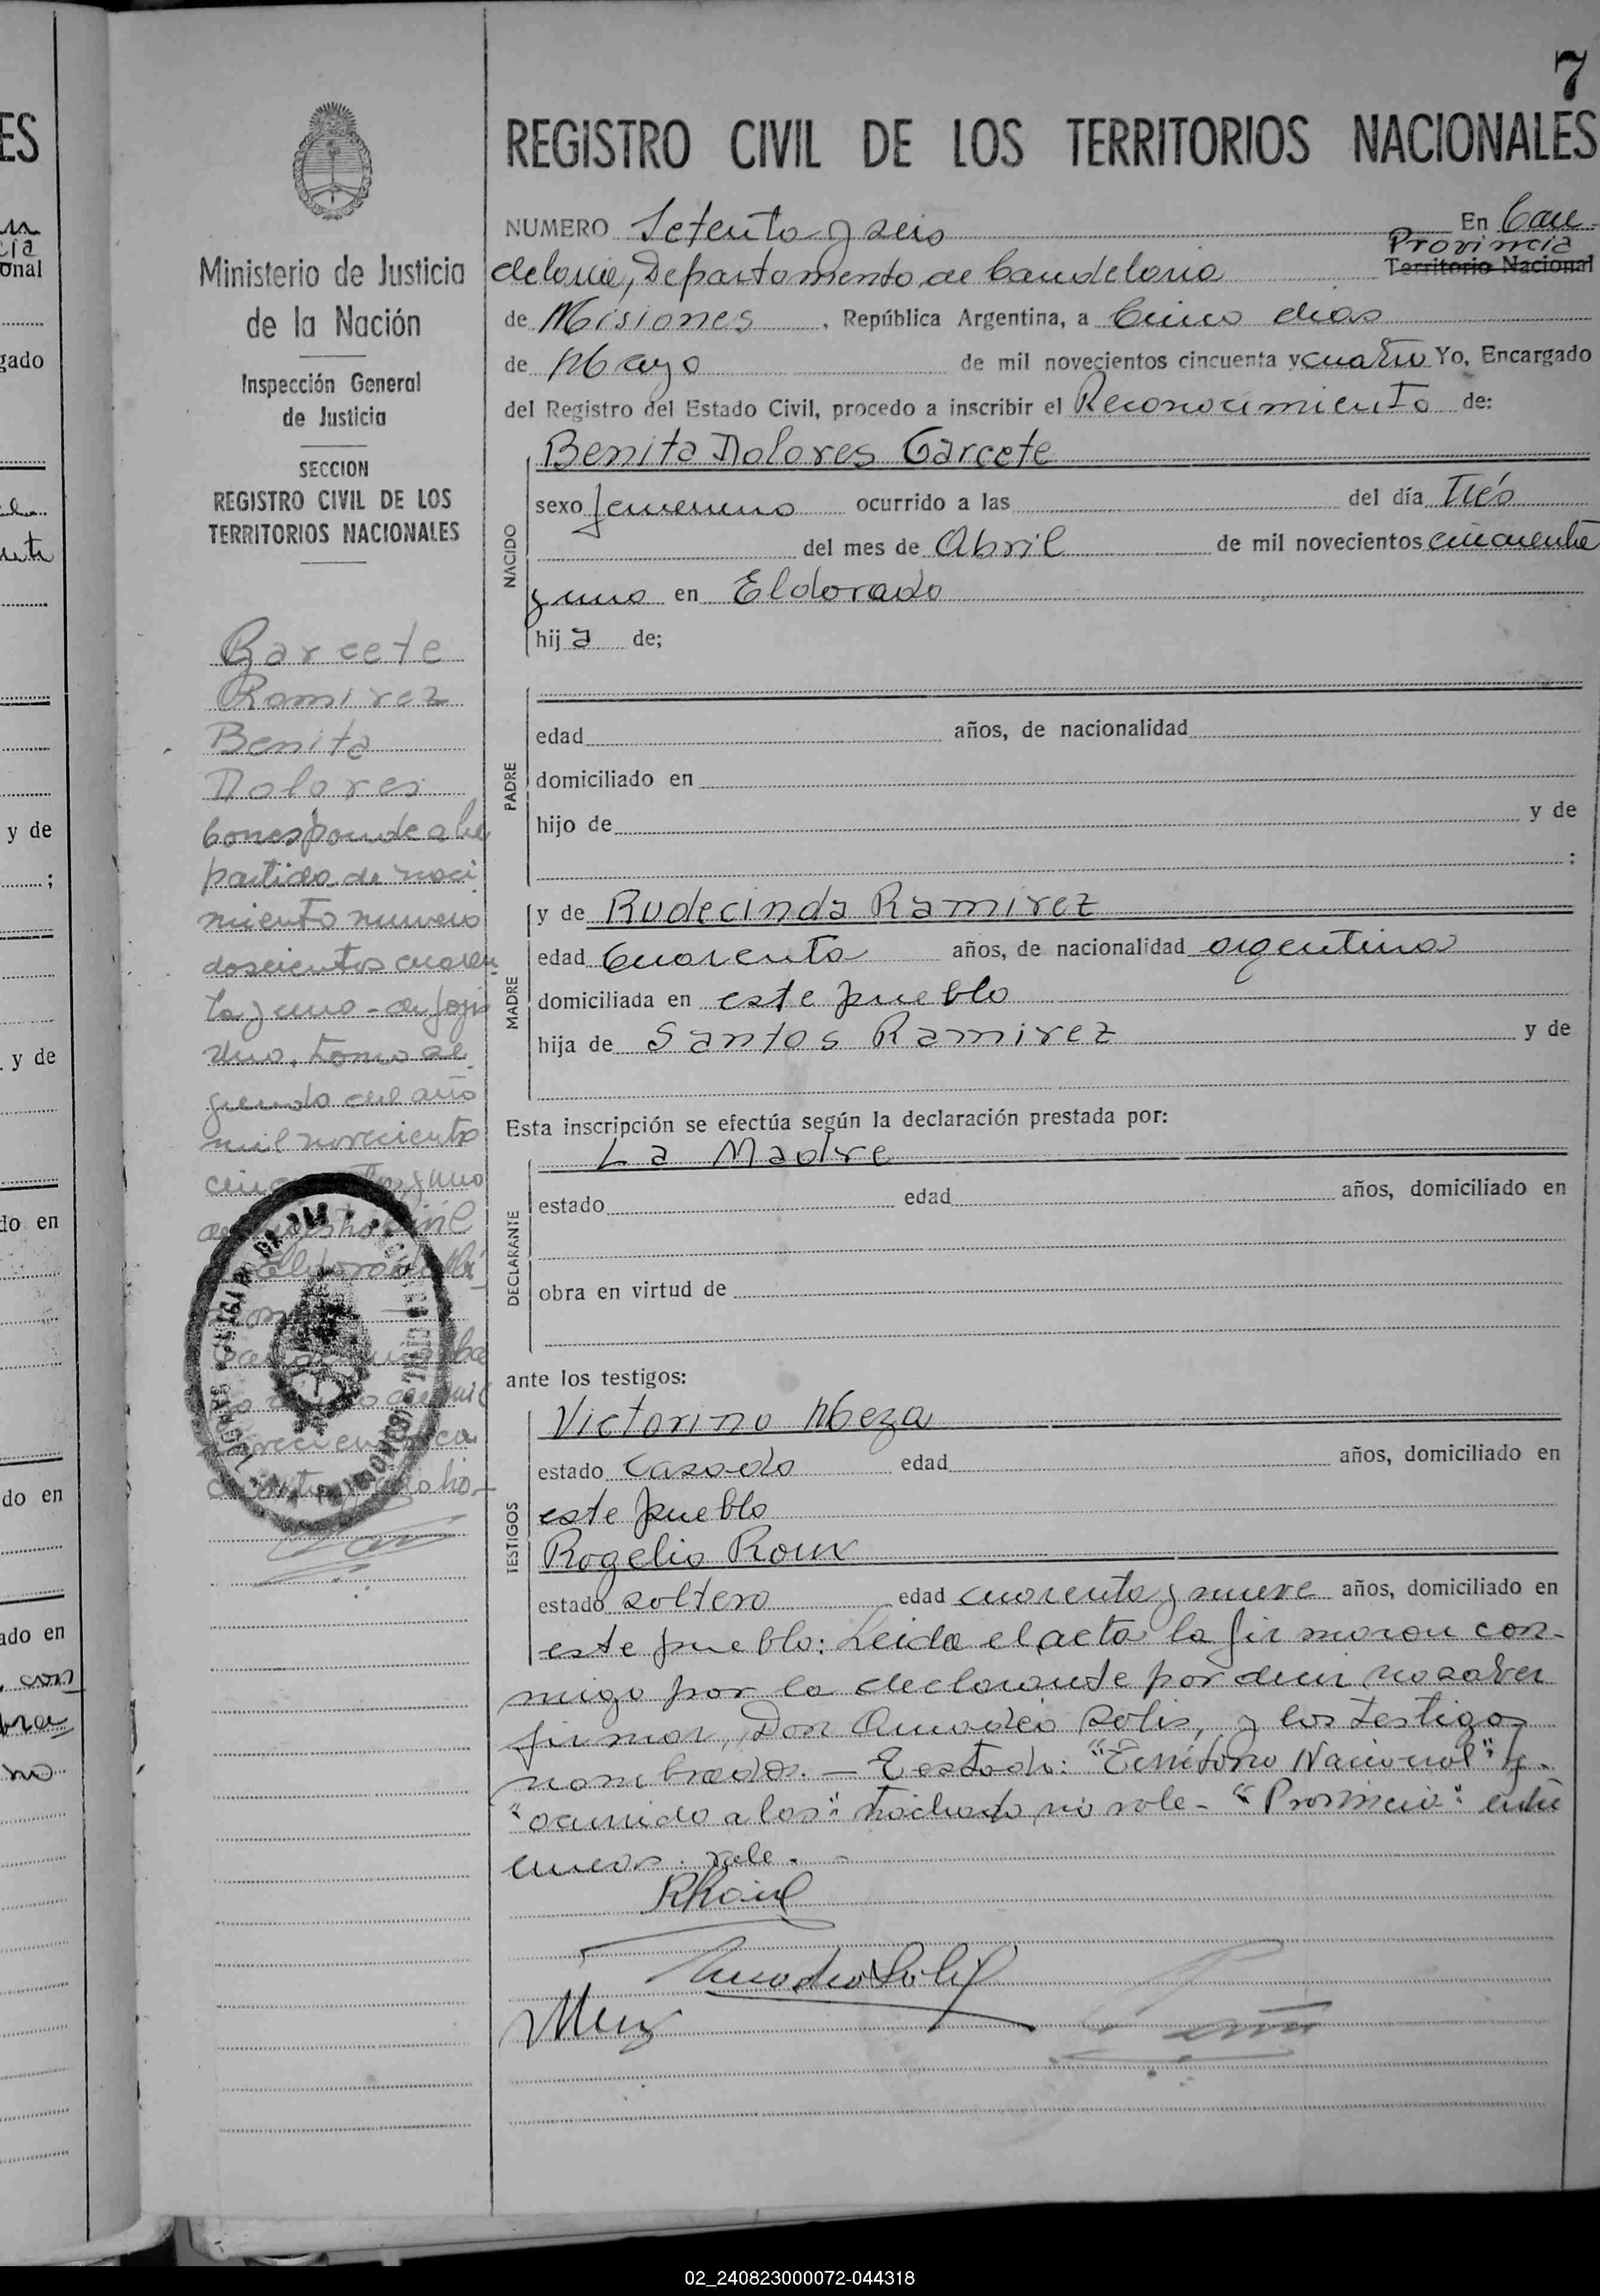 7
REGISTRO CIVIL DE LOS TERRITORIOS NACIONALES
NUMERO Setenta y seis En Can-
Provincia
delaria, Departamento de Candelaria Territorio Nacional
de Misiones, República Argentina, a Cinco dias
de Mayo de mil novecientos cincuenta y cuatro Yo, Encargado
del Registro del Estado Civil, procedo a inscribir el Reconocimiento de:
Benita Dolores Garcete
NACIDO
sexo femenino ocurrido a las del día Trés
del mes de Abril de mil novecientos cincuenta
y uno en Eldorado
hija de;
PADRE
edad años, de nacionalidad
domiciliado en
hijo de y de
:
MADRE
y de Rudecinda Ramirez
edad Cuarenta años, de nacionalidad argentina
domiciliada en este pueblo
hija de Santos Ramirez y de
Esta inscripción se efectúa según la declaración prestada por:
La Madre
DECLARANTE
estado edad años, domiciliado en
obra en virtud de
ante los testigos:
TESTIGOS
Victorino Meza
estado Casado edad años, domiciliado en
este pueblo
Rogelio Roux
estado soltero edad cuarenta y nueve años, domiciliado en
este pueblo: Leida el acta la firmaron con-
migo por la declarante por decir no saber
firmar, Don Amadeo Solis, y los testigos
nombrados. — Testado: "Territorio Nacional" y-
"ocurrido a las": tachado, no vale- "Provincia": entre
lineas. vale. -
Amadeo Solis
Ministerio de Justicia
de la Nación
Inspección General
de Justicia
SECCION
REGISTRO CIVIL DE LOS
TERRITORIOS NACIONALES
Garcete
Ramirez
Benita
Dolores
Corresponde a la
partida de naci
miento numero
doscientos cuaren
ta y uno - de fojas
uno, tomo se
gundo del año
mil novecientos
y uno
Eldorado
ES
onal
gado
y de
;
y de
do en
do en
ado en
con
no
02_240823000072-044318